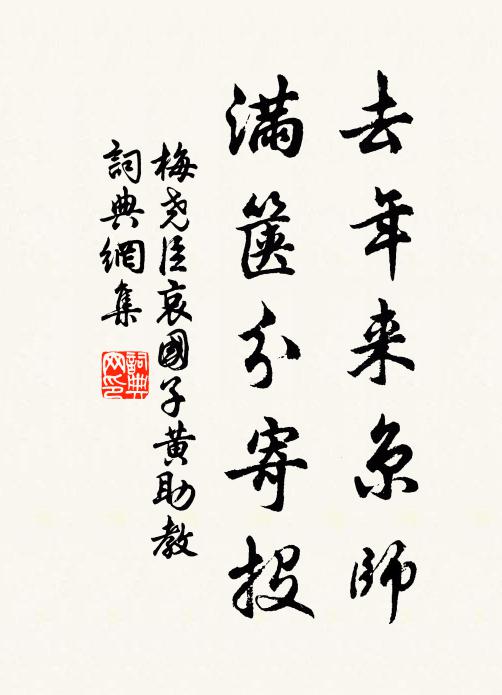 去年来京師
满箧分寄投
梅尧臣哀國子黄助教
詞典網集
詞典网印